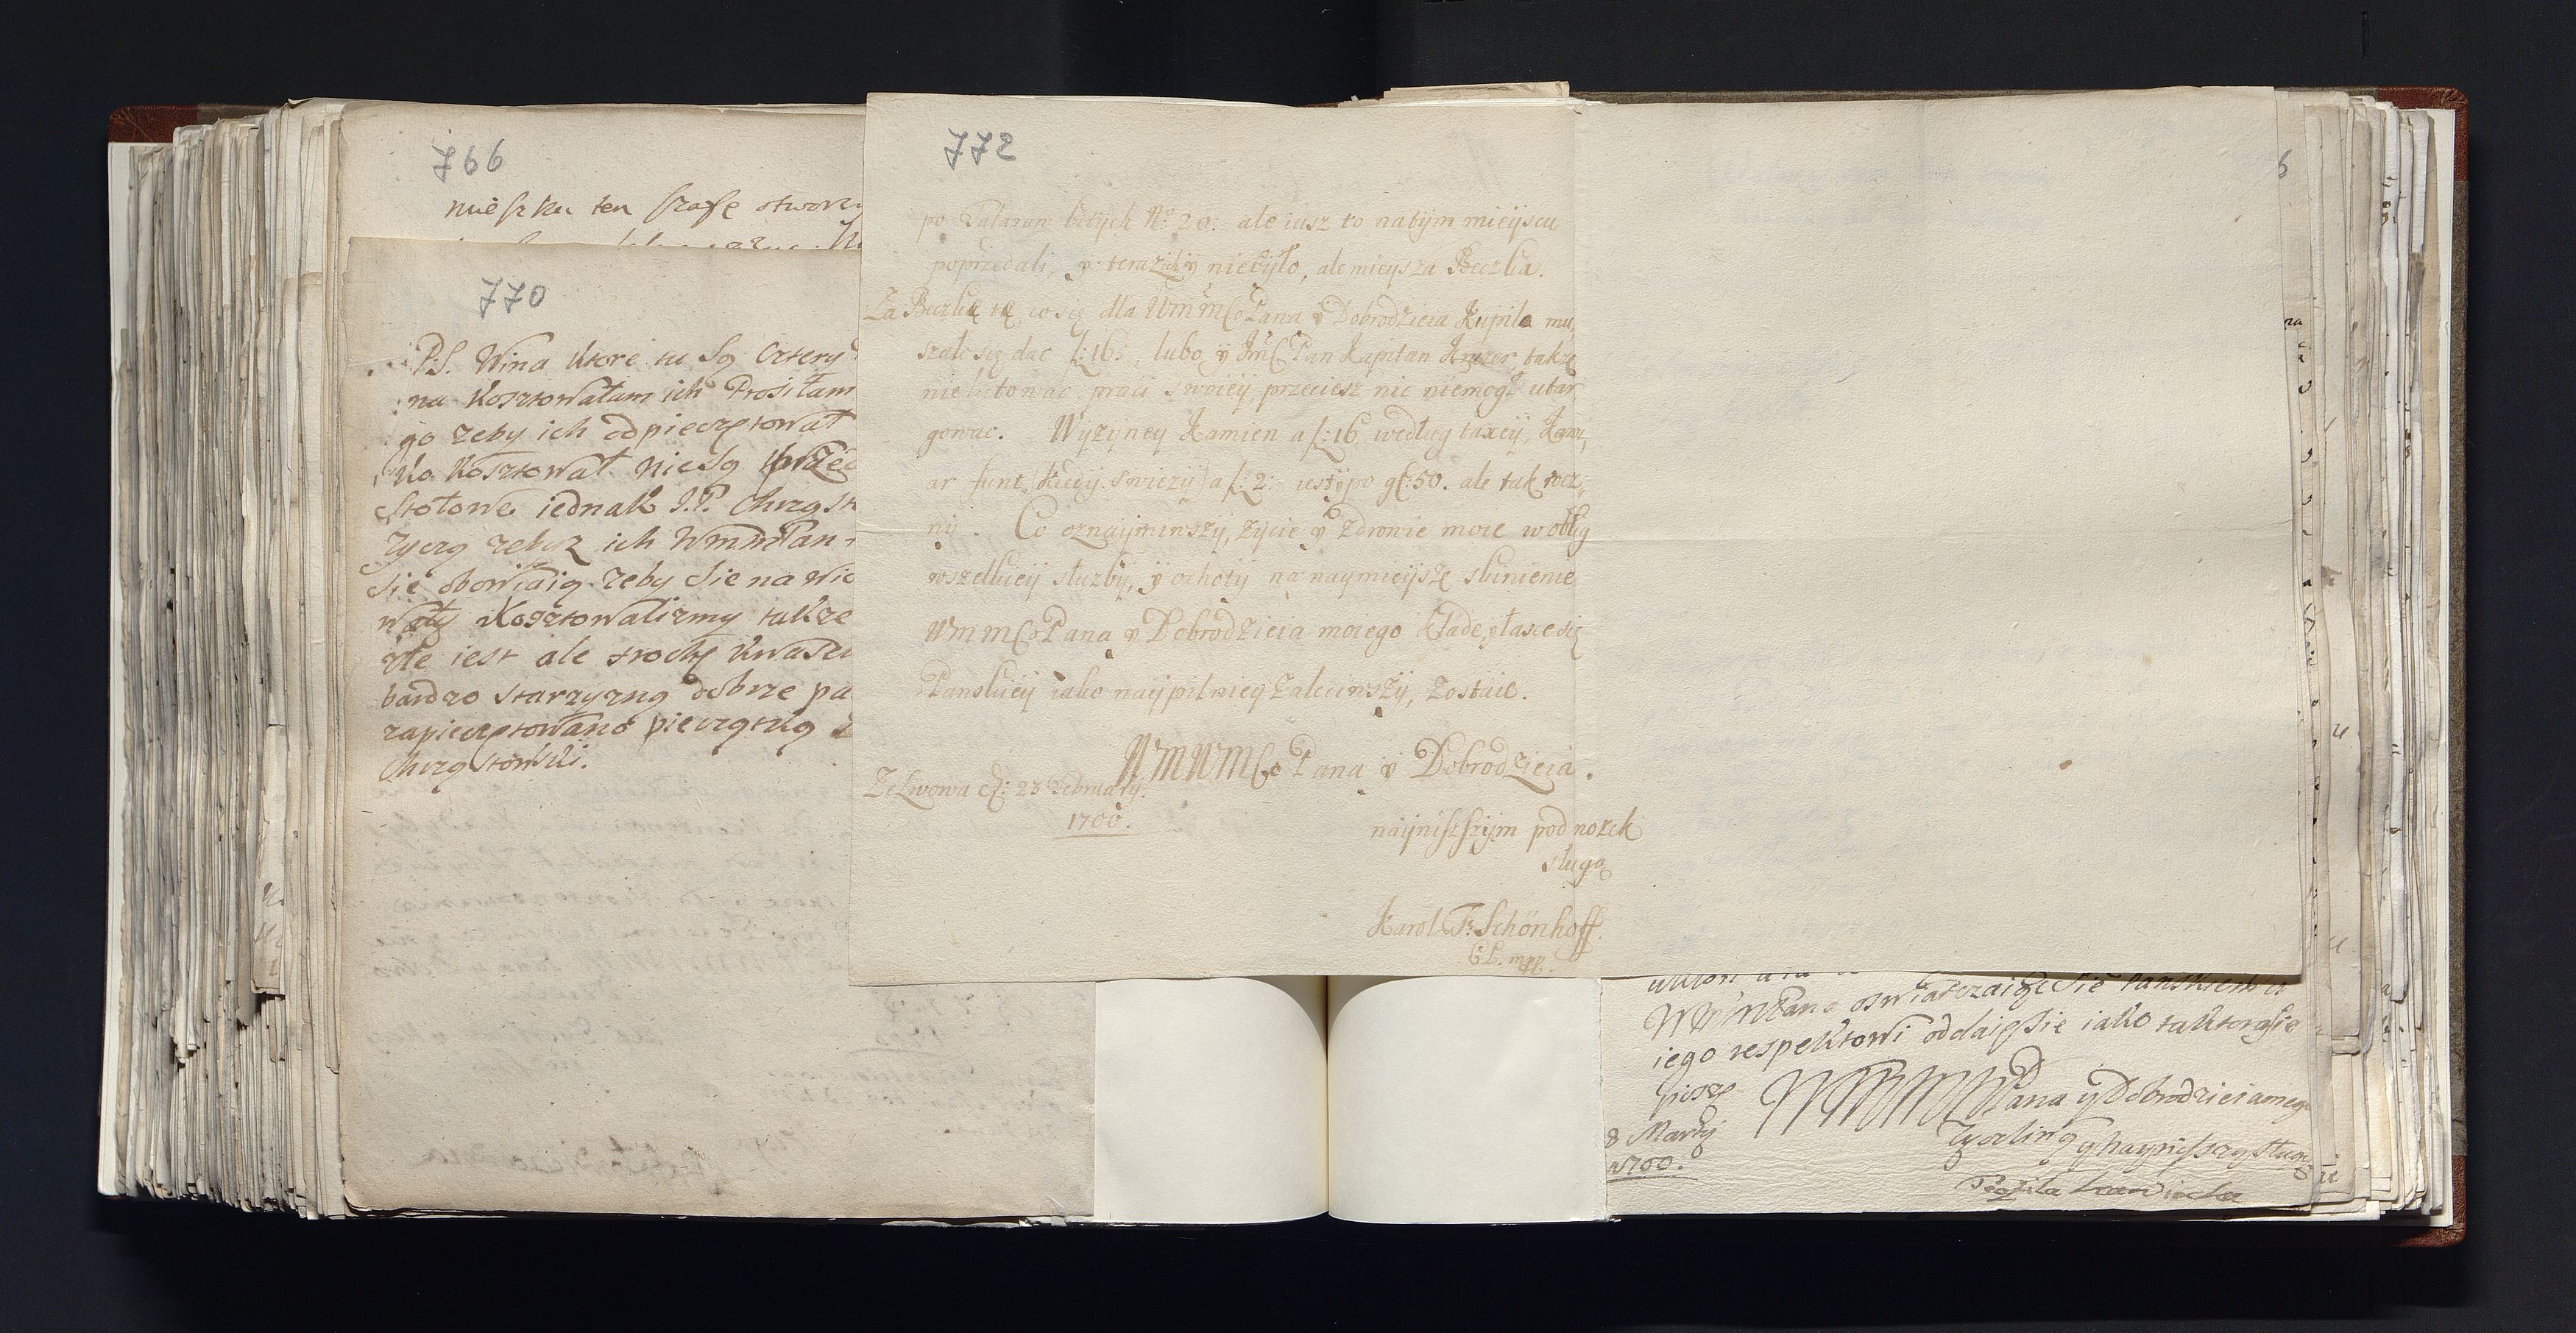 766
mieszku ten szafe
770
P.S. Wina ktore tu są cztery
na kosztowałam ich Prosiłam
go zeby ich odpieczętował
ko kosztował nie są
stołowe iednak J.P. Chrząst
zyczą zebyz ich WmmPan
sie obowiaią zeby sie na
wały kosztowalizmy takze
złe iest ale trochę
bardzo starzyzną dobrze
zapieczętowano pieczątką
Chrząstowski.
772
po Talarow bitych No: 20: ale iusz to natÿm mieÿscu
poprzedali, ÿ niebÿło, ale mieysza Beczka.
Za Beczkę tę co się dla WMMCoPana ÿ Dobrodzieia Kupiła mu,
szało się dac f: 165 lubo ÿ JmC Pan Kapitan także
nielitowac praci swoieÿ, przeciesz nic niemogł utar
gowac. Wÿzÿneÿ Kamien a f: 16 według taxeÿ, Kawi,
ar funt, kiedÿ swiezÿ a f: 2: iest ÿ po gf: 50. ale tak rocz,
nÿ. Co oznaÿmiwszÿ, zÿcie ÿ zdrowie moie w obług
wszelkieÿ służbÿ, ÿ ochotÿ na naymieÿsze skinienie
WMMCoPana ÿ Dobrodzieia moiego kładę, ÿ łasce się
Panskieÿ iako naÿpilnieÿ zaleciwszÿ, zostaię.
WMWMCoPana ÿ Dobrodzieia.
Ze Lwowa d: 23 Februarÿ.
1700.
naÿniszszÿm podnozek
sługą
Karol Fr: Schönhoff.
mpp.
WMMPana oswiatczaiąc sie Panskiemu
iego respektowi oddaię sie iako taktora sie
piszę
WMMMPana y Dobrodzieia mego
8 Martÿ
1700.
Zyczliwą y naynisszą sługą